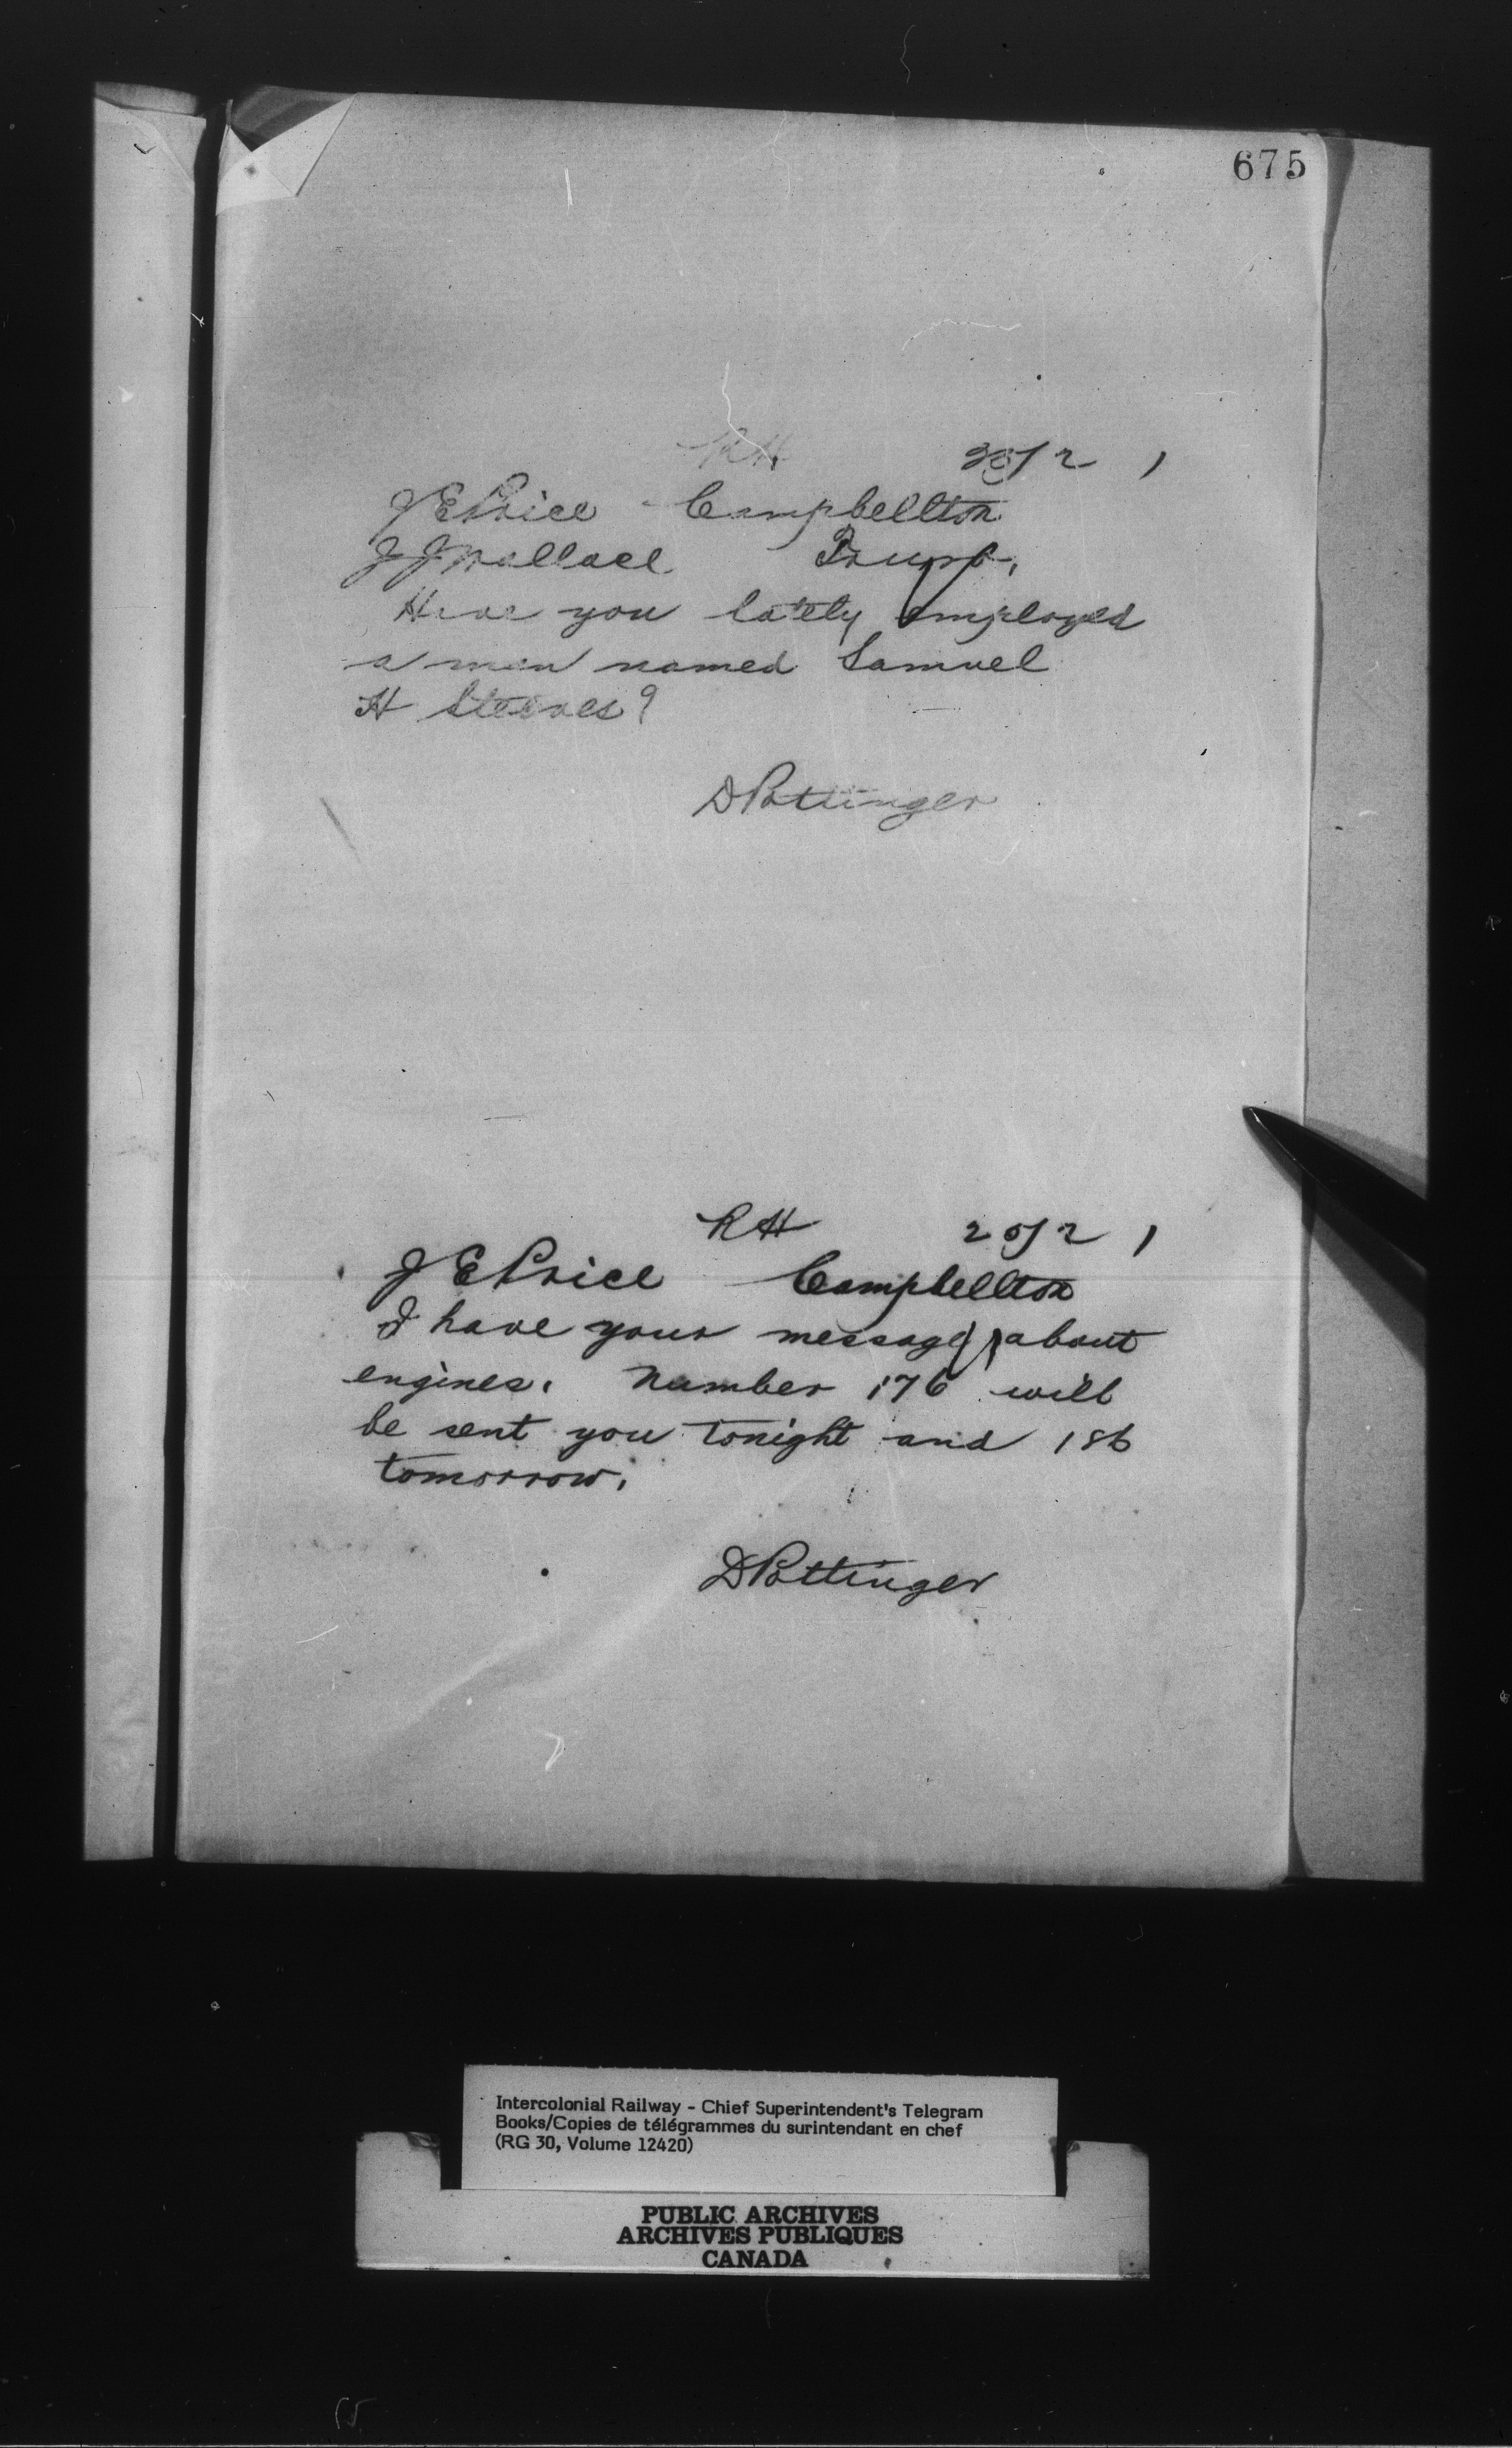 675
RH
J E Price Campbellton
J J Wallace Truro,
Have you lately employed
a man named Samuel
H Steeves?
D Pottinger
RH 25/2 1
J E Price Campbellton
I have your message about
engines. Number 176 will
be sent you tonight and 186
tomorrow.
D Pottinger
Intercolonial Railway - Chief Superintendent's Telegram
Books/Copies de télégrammes du surintendant en chef
(RG 30, Volume 12420)
PUBLIC ARCHIVES
ARCHIVES PUBLIQUES
CANADA